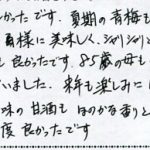 かったです。夏期の青梅も
夏様に美味しく、シャリシャリと
も良かったです。85歳の母も
いました。来年も楽しみに
味の甘酒もほのかな香りと
度良かったです